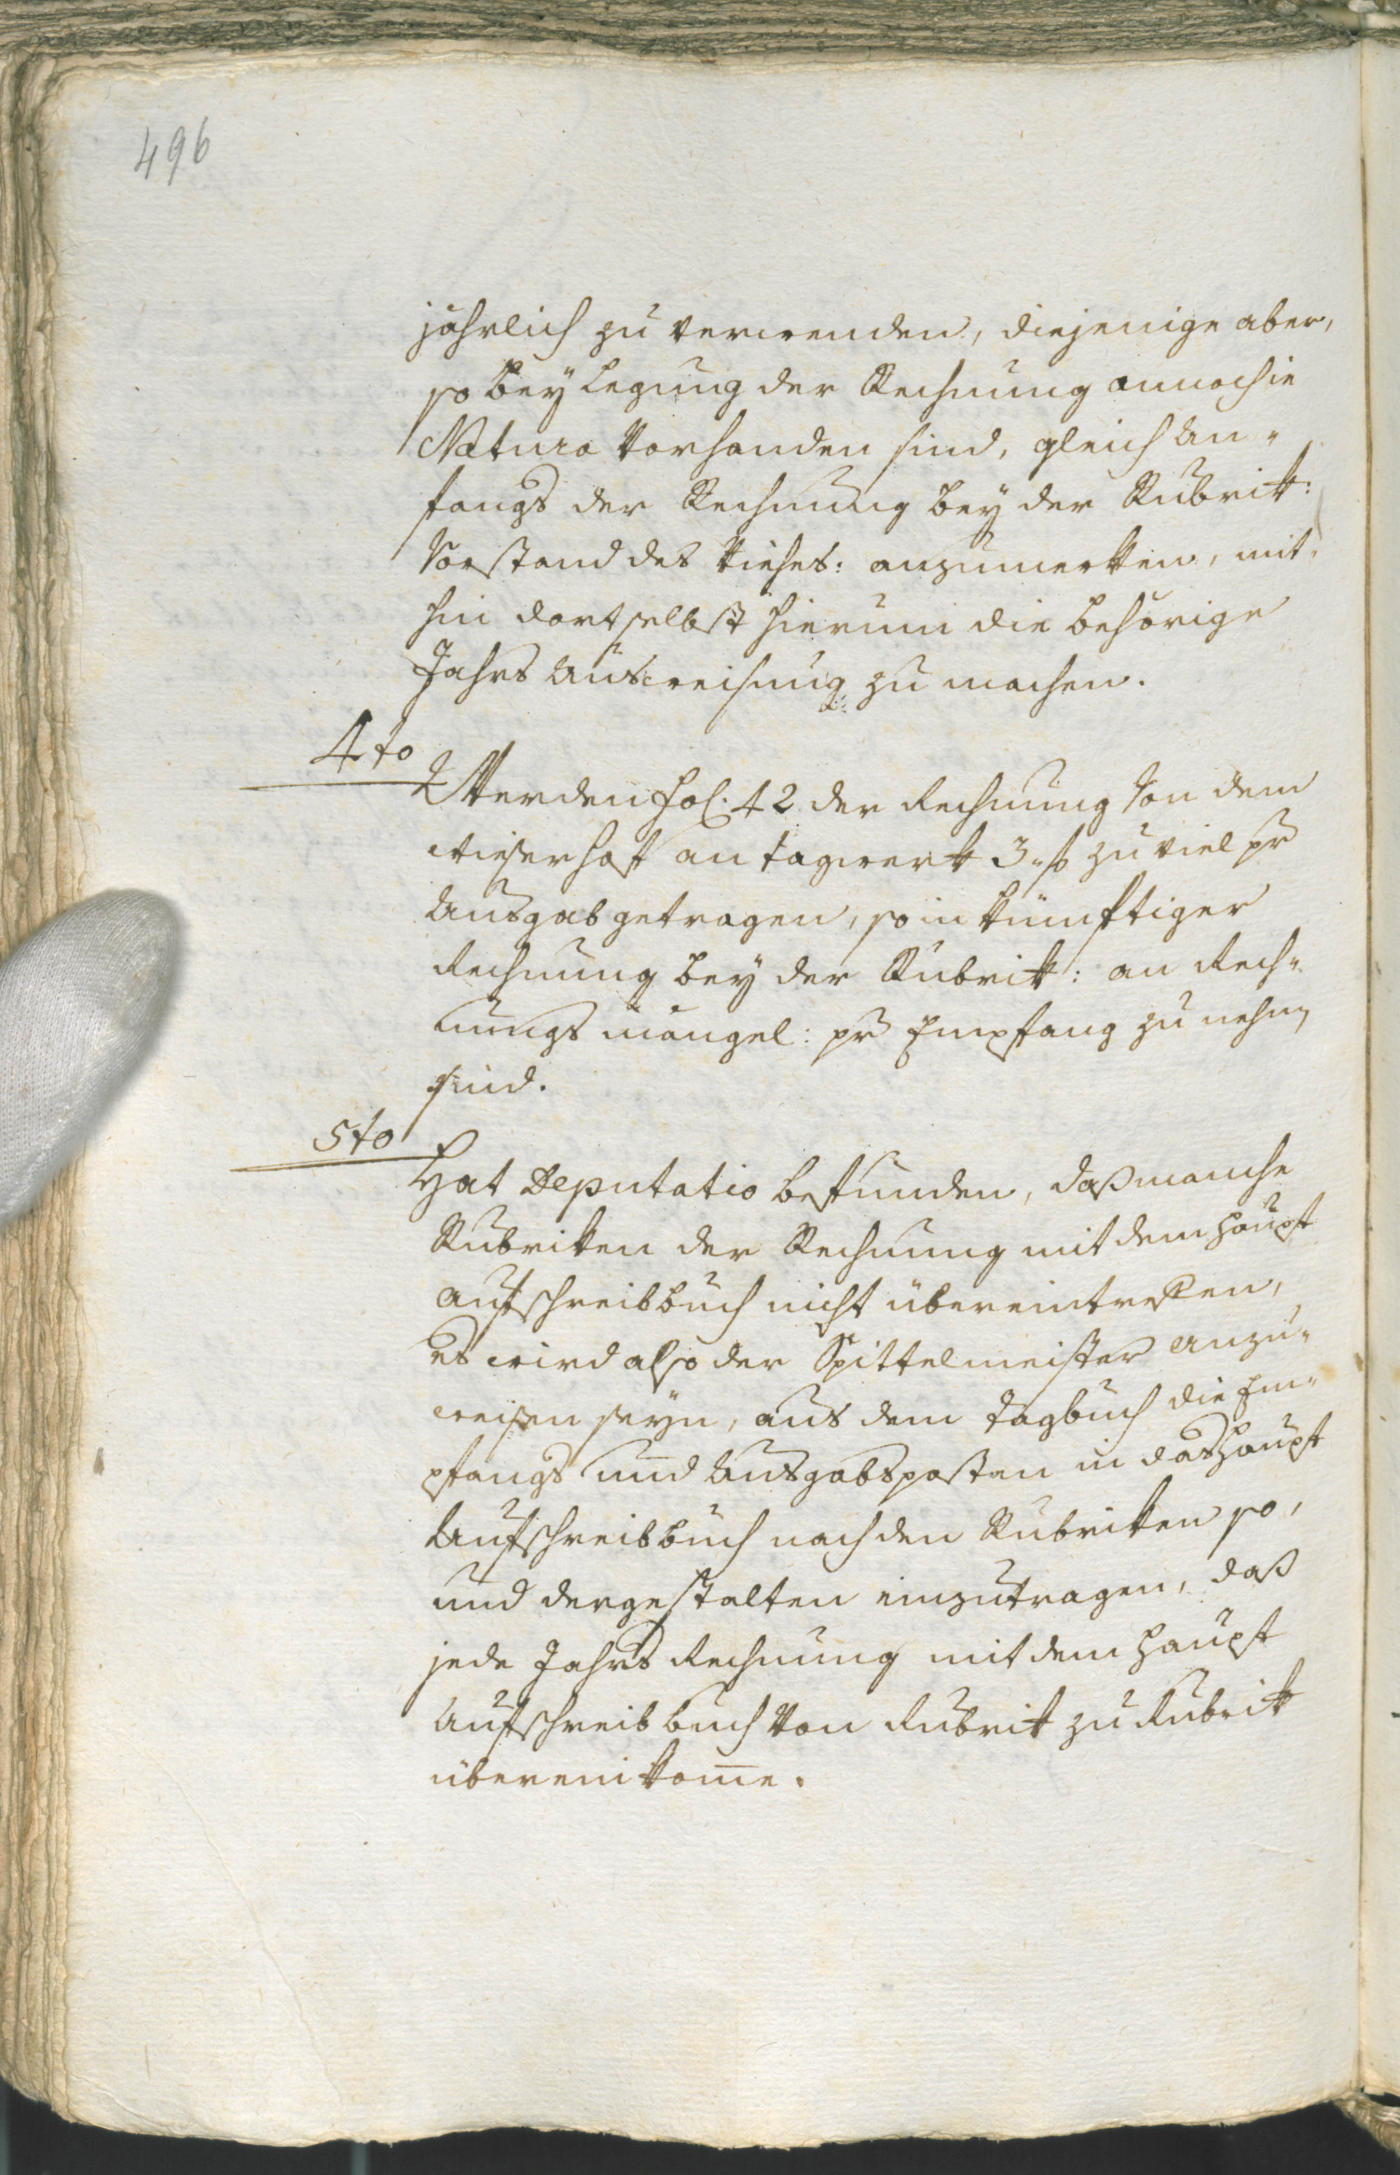 496
jährlich zu verwenden, diejenige aber,
so bey Legung der Rechnung annoch in
Natura vorhanden sind, gleich An-
fangs der Rechnung bey der Rubrik:
Vorstand des Viehes: anzumerken, mit-
hin dortselbst hierum die behörige
Jahrs Ausweisung zu machen.
4to
Werden Fol. 42 der Rechnung von dem
Wieserhof an Tagwerk 3 zu viel pr
Ausgab getragen, so in künftiger
Rechnung bey der Rubrik: an Rech-
nungs mängel: pr Empfang zu nehm
sind.
5to
Hat Deputatio befunden, daß manche
Rubriken der Rechnung mit dem Haupt
aufschreibbuch nicht übereintreffen,
es wird also der Spittelmeister anzu-
weisen seyn, aus dem Tagbuch die Em-
pfangs und Ausgabsposten in das Haupt
Aufschreibbuch nach den Rubriken so,
und dergestalten einzutragen, daß
jede Jahrs Rechnung mit dem Haupt
Aufschreibbuch von Rubrik zu Rubrik
übereinkom̅e.